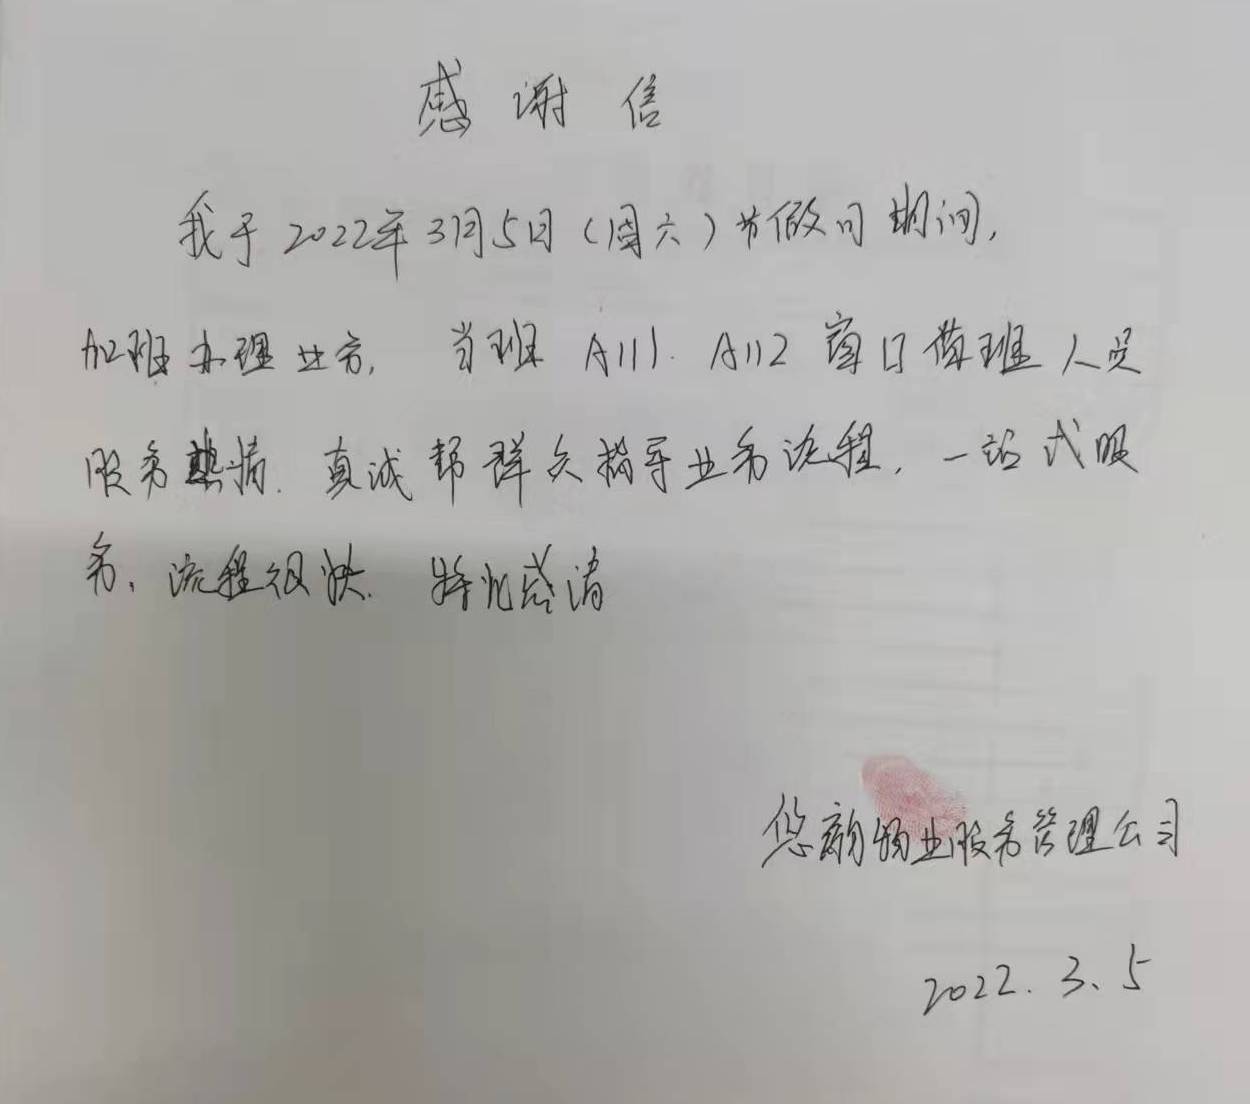 感谢信
我于2022年3月5日（周六）节假日期间,
加班办理业务, 当班 A111. A112 窗口值班人员
服务热情. 真诚帮群众指导业务流程, 一站式服
务, 流程很快. 特此感谢
悠韵物业服务管理公司
2022.3、5